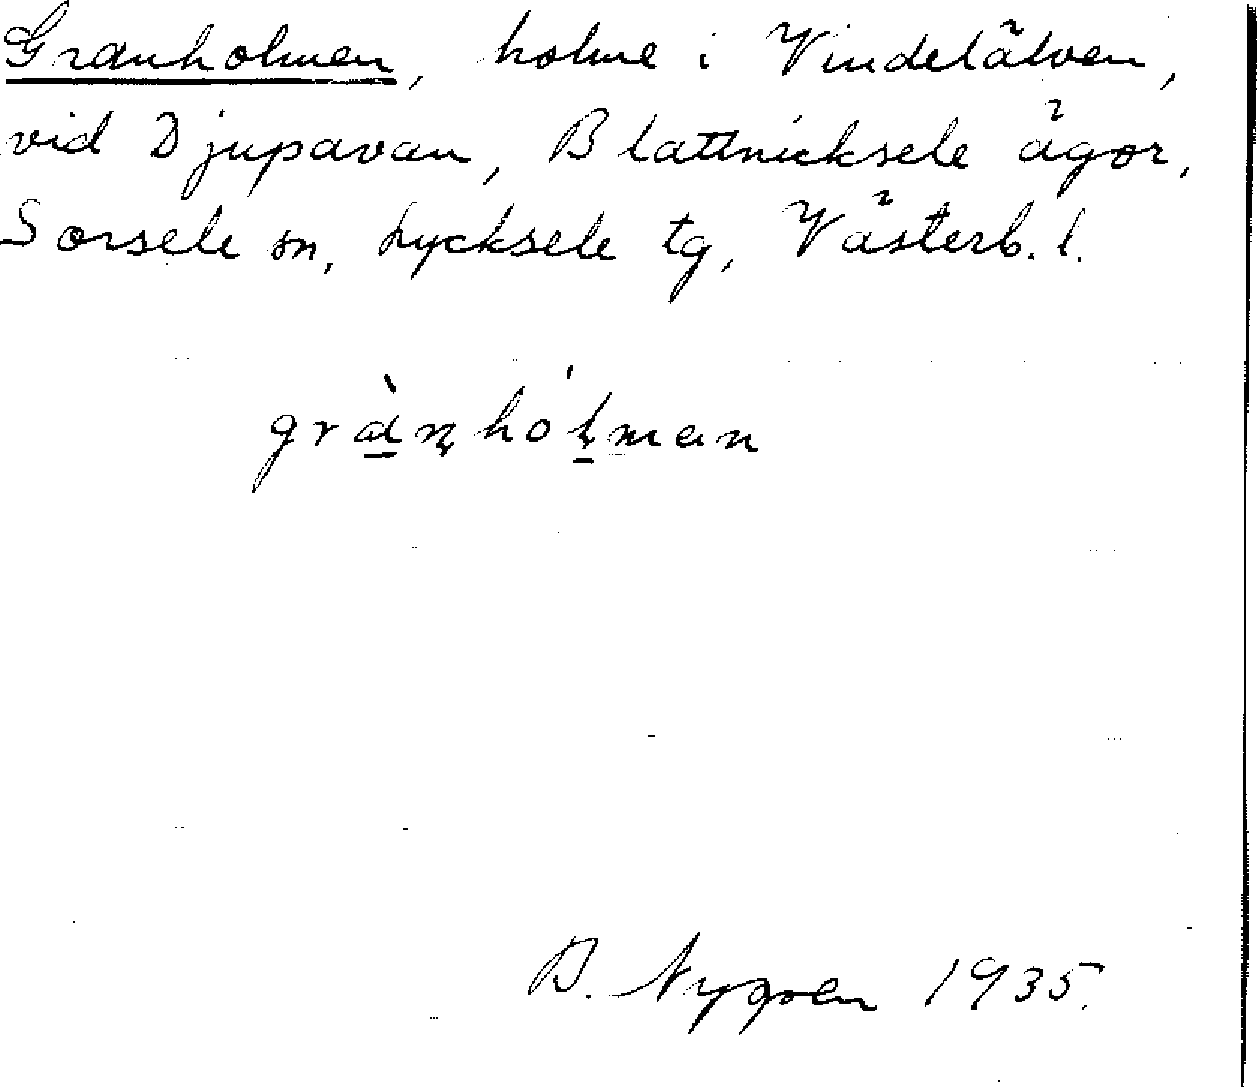 Granholmen, holme i Vindelälven,
vid Djupavan, Blattnicksele ägor,
Sorsele sn, Lycksele tg, Västerb. l.
grànhólman
B. Nygren 1935.